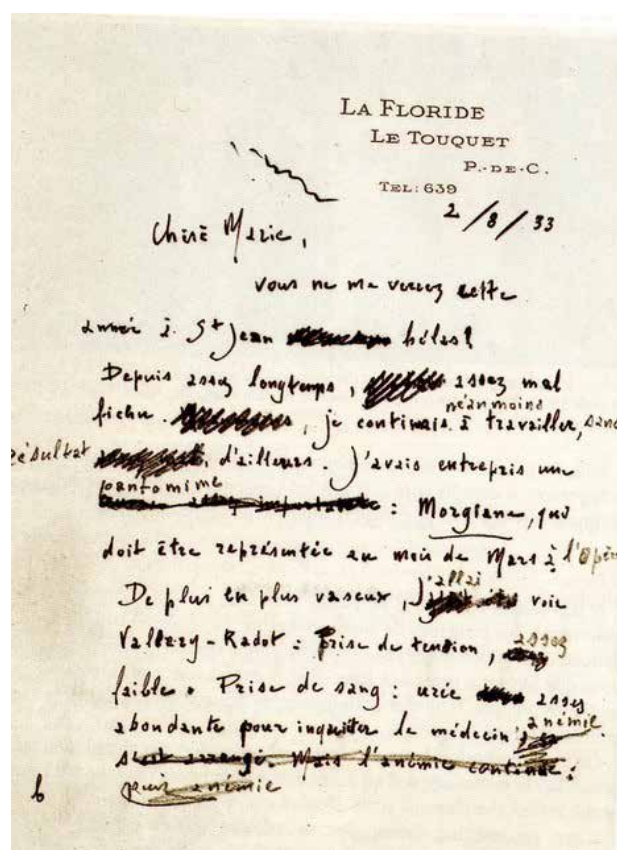 LA FLORIDE
LE TOUQUET
P.-DE-C.
TEL: 639
2/8/33
Chère Marie,
vous ne me verrez cette
année à St Jean hélas!
Depuis assez longtemps, assez mal
fichu. néanmoins
, je continais à travailler, sans
résultat, d'ailleurs. J'avais entrepris une
pantomime
: Morgiane, qui
doit être représentée au mois de Mars à l'Opér
De plus en plus vaseux, j'allai voir
Vallery-Radot : prise de tension, assez
faible. Prise de sang : urée assez
abondante pour inquiéter le médecin, anémie.
Mais l'anémie continue :
puis anémie